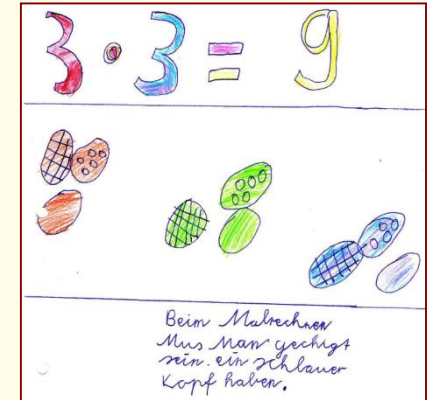 3 · 3 = 9
Beim Malrechnen
Mus Man gechigt
sein. ein schlauer
Kopf haben.